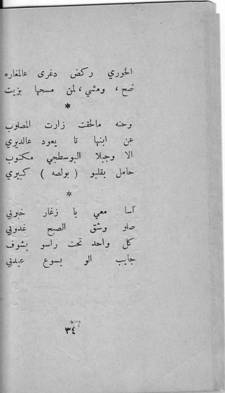 الخوري ركض دغري عالمغاره
ضح، ومشي، لمن مسحها بزيت
*
وحنه مالحقت زارت المصلوب
عن ابنها تا يعود عالديري
الا وجيلا البوسطجي مكتوب
حامل بقلبو ( بولصه ) كبيري
*
آسا معي يا زغار خبوبي
صلو وشق الصبح عدوبي
كل واحد تحت راسو بشوف
جايب الو يسوع عيدبي
٣٤